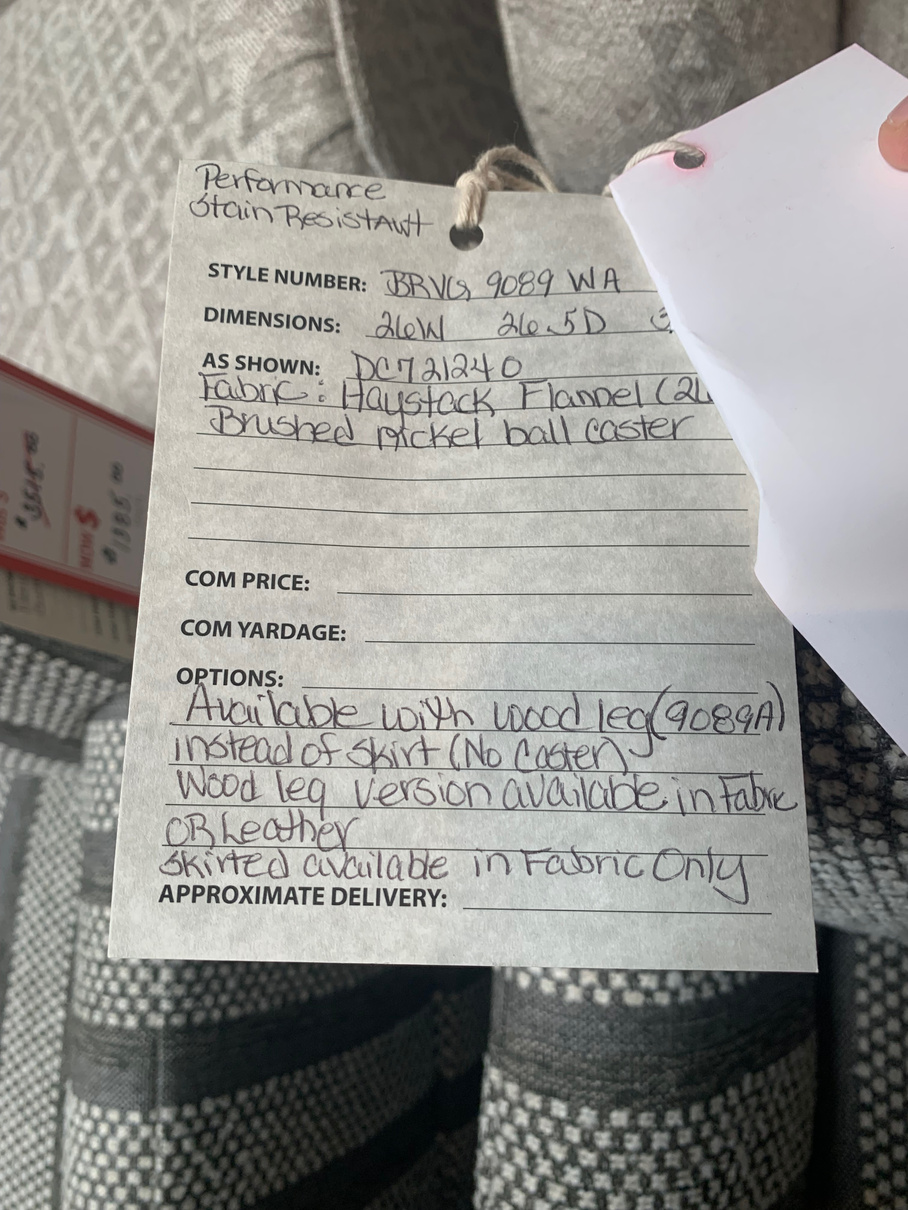 Performance
Stain Resistant
STYLE NUMBER: BRVG 9089 WA
DIMENSIONS: 26W 26.5D 3
AS SHOWN: DC721240
Fabric: Haystack Flannel (2
Brushed nickel ball caster
COM PRICE:
COM YARDAGE:
OPTIONS:
Available with wood leg (9089A)
instead of skirt (No Caster)
Wood leg version available in Fabric
OR Leather
Skirted available in Fabric Only
APPROXIMATE DELIVERY:
NOW $
$1985.00